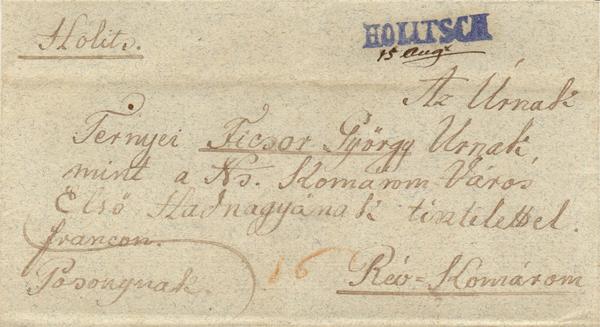 Holits.
HOLITSCH
15 Aug.
Az Úrnak
Ternyei Ficsor György Urnak
mint a Ns. Komárom Város
Első Hadnagyának tisztelettel.
francon.
Posonynak.
16
Rév=Komárom